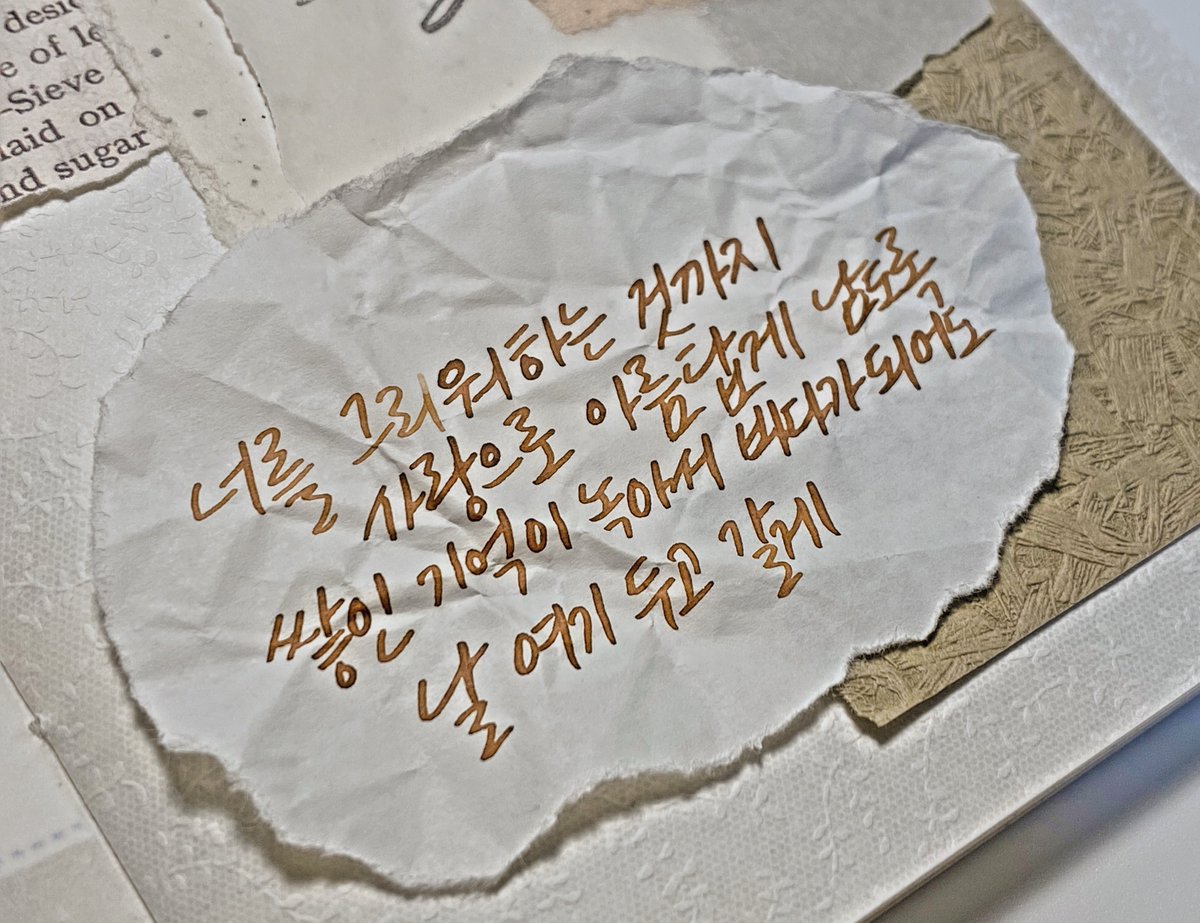 desi
e of le
-Sieve
laid on
nd sugar
너를 그리워하는 것까지
사랑으로 아름답게 남도록
쌓인 기억이 녹아서 바다가 되어도
날 여기 두고 갈게